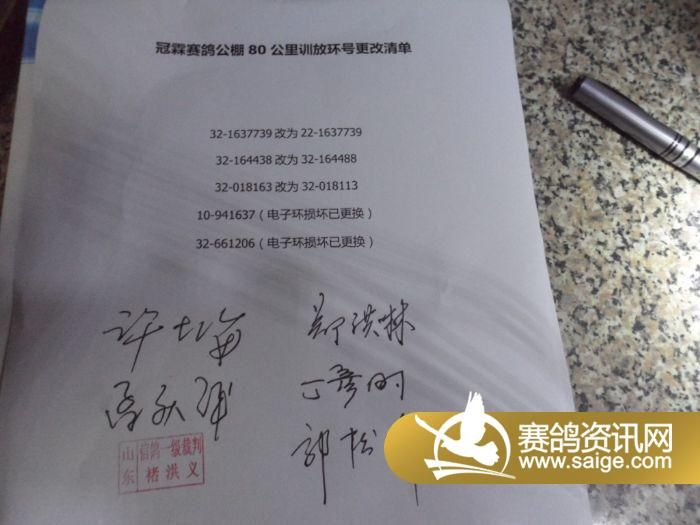 冠霖赛鸽公棚 80 公里训放环号更改清单
32-1637739 改为 22-1637739
32-164438 改为 32-164488
32-018163 改为 32-018113
10-941637（电子环损坏已更换）
32-661206（电子环损坏已更换）
郑洪林
丁彦明
山东
信鸽一级裁判
褚洪义
赛鸽资讯网
www.saige.com